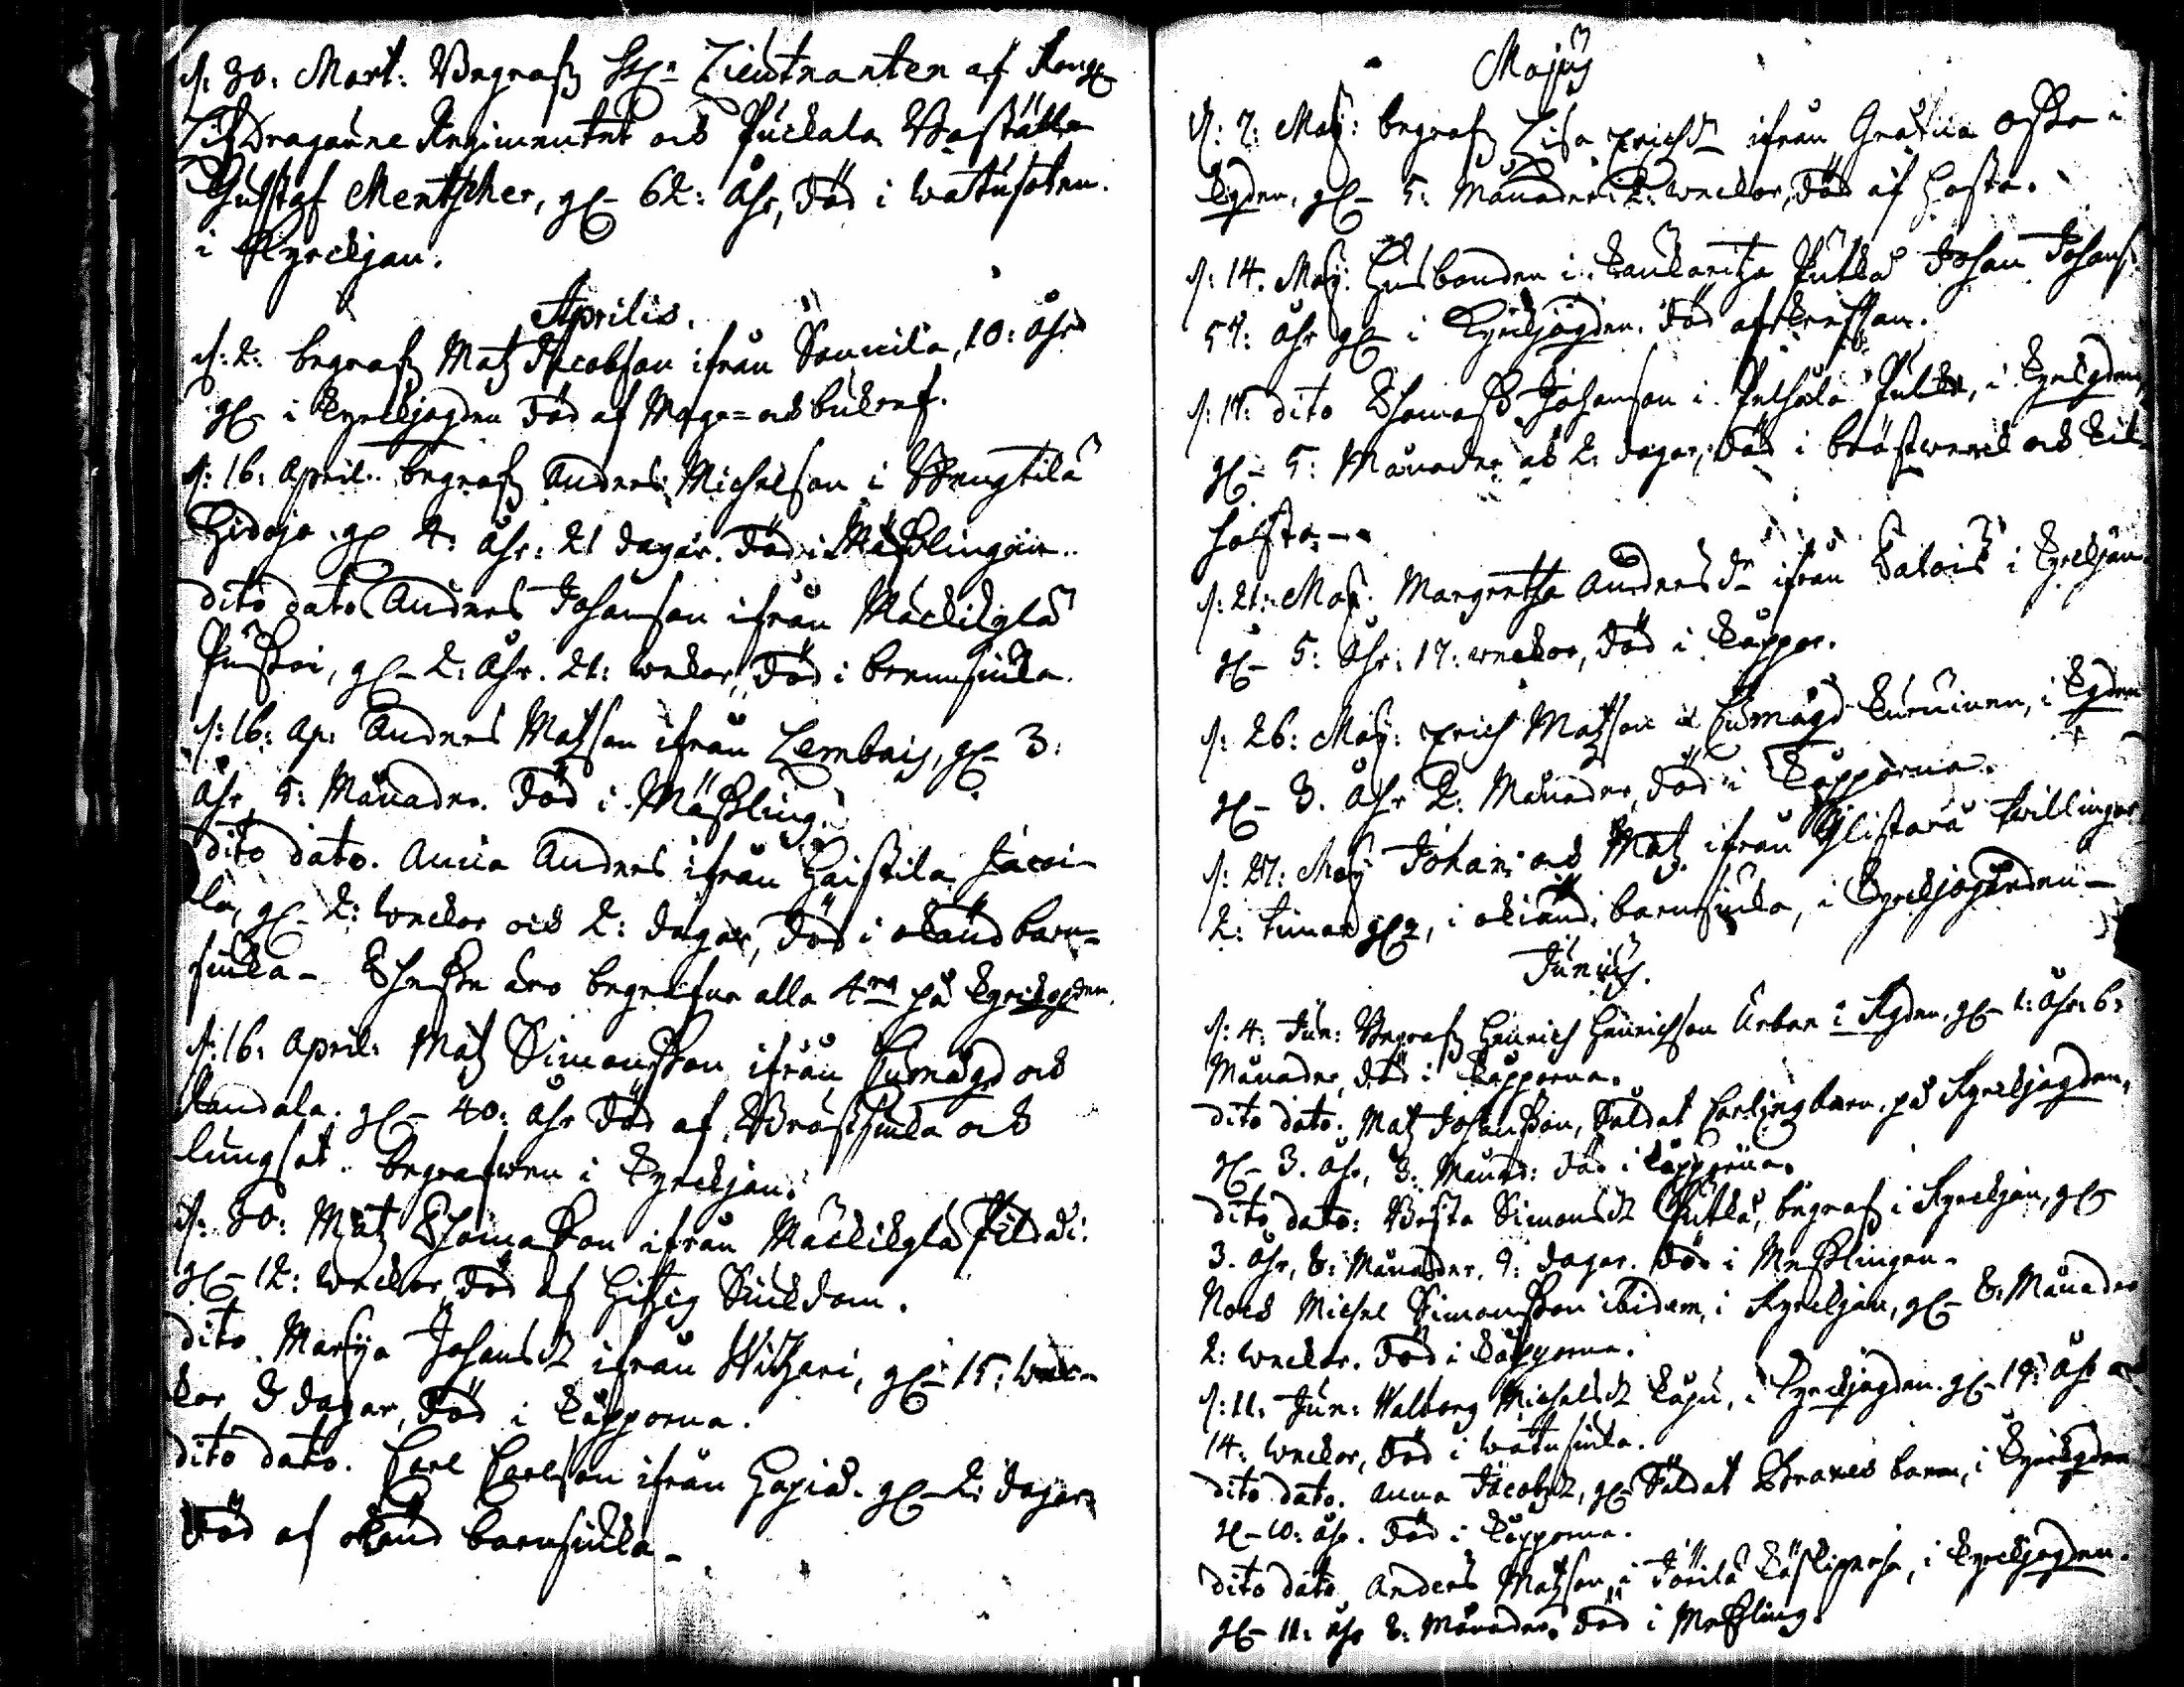 d: 30: Mart: Begrafs H:r Lieutnanten af Kongl
Lif Dragoune Regimentet och Puckala Beställ
Gustaf Mentscher, gl 62: Åhr, död i watusoten.
i Kyrckjan.
Aprilis.
d: 2: begrafs Matz Jacobson ifrån Sannila, 10: Åhr
gl i Kyrckjogden död af Mage= och bukref.
d: 16: April: begrafs Anders Michelson i
gl 4: Åhr: 21 dagar. död i Mässlingen.
dito dato Anders Johanson ifrån Mackilylä
gl 2: Åhr. 21: wekor, död i barnsiuka.
d: 16: Ap: Anders Matzson ifrån Lembois, gl 3:
Åhr 5: Månader. död i Mässling.
dito dato. Anna Anders ifrån Haistila Jacoi-
la, gl 2: weckor och 2: dagar, död i okänd barn=
siuka - Thesse äro begrafne alla 4ra på Kyrckogden.
d: 16: April: Matz Simonsson ifrån och
gl 40: Åhr död af Bröstsiuka och
lungsot. begrafwen i Kyrckjan.
d: 30: Matz Thomasson ifrån Mackilylä
gl 12: weckor, död af Hitzig Siukdom.
dito Marija Johansdr ifrån gl 15: wec-
kor 2 dagar, död i Kopporna.
dito dato. Carl Carlson ifrån gl 2: dagar
död af okänd barnsiuka -
Majus
d: 7: Maij: begrafs Lisa Erichsdr ifrån i
Kgden, gl 5: Månader 2: weckor, död af Hosta.
d: 14. Maij: Husbonden i Johan Johans
57: Åhr gl i Kyrckjogden. död af
d: 17: dito Thomas Johanson i i Kyrckgden,
gl 5: Månader och 2: dagar, död i bröstwerck och
hosta -
d: 21: Maij: Margretha Andersdr ifrån Salois i Kyrckjan
gl 5: Åhr: 17: weckor, död i Koppor.
d: 26: Maij: Erich Matzson i Kgden
gl 3. Åhr 2: Månader, död i Kopporna.
d: 27: Maij Johan och Matz ifrån Ylistarå twillingar
2: timar gl, i okiänd barnsiuka, i Kyrckjogården -
Junius.
d: 4: Jun: Begrafs Henrich Henrichson i Kgden, gl 1: Åhr: 6:
Månader, död i Kopporna.
dito dato: Matz Johansson, Soldat barn, på Kyrckjogden,
gl 3. Åhr, 3: Månad: död i Kopporna.
dito dato: Simonsdr begrafs i Kyrckjan, gl
3. Åhr, 8: Månader, 9: dagar. död i Messlingen -
Noch Michel Simonsson ibidem, i Kyrckjan, gl 8: Månader
2: weckor. död i Kopporna.
d: 11: Jun: Walborg Michelsdr i Kyrckjogden, gl 17: Åhr
14: weckor, död i watusiuka.
dito dato. Anna Jacobsdr, Soldat barn, i Kyrckgden
gl 10: Åhr. död i Kopporna.
dito dato Anders Matzson, i i Kyrckjogden.
gl 11: Åhr 8: Månader. död i Messling.